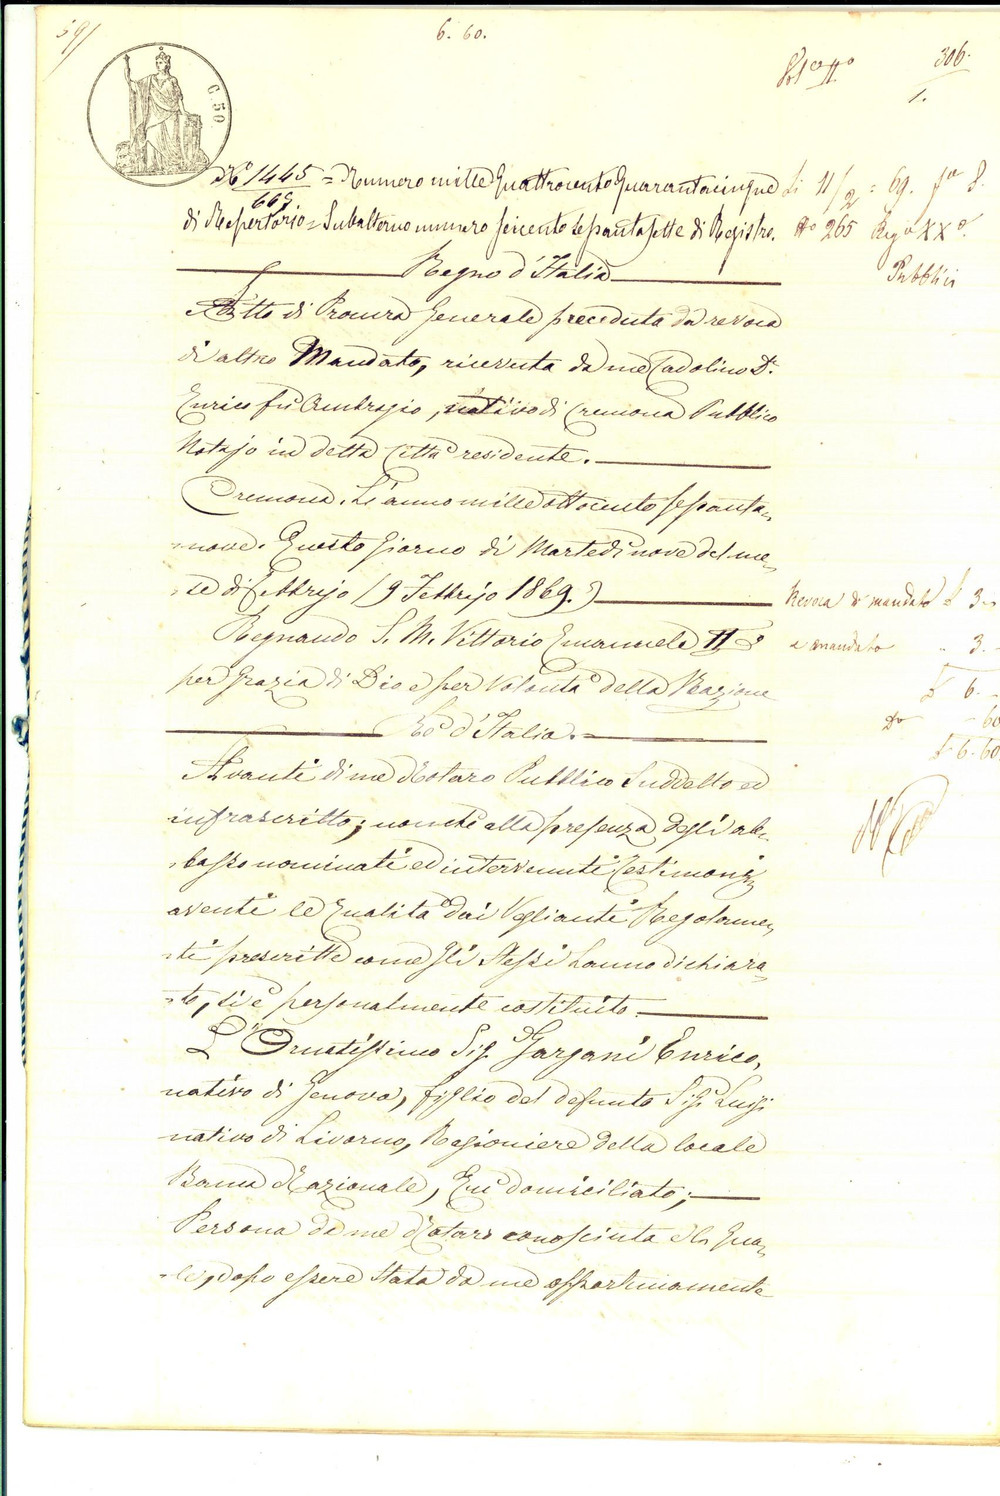 591
6. 60.
306.
1.
C. 50
N.º 1445 = Numero mille Quattrocento Quarantacinque
667
di Repertorio = Subalterno numero seicento sessantasette di Registro.
Li 11/2 = 69. fº 8.
Nº 265 Regº XXº.
Pubblici
Regno d'Italia
Atto di Procura Generale preceduta da revoca
di altro Mandato, ricevuta da me Cadolino Dr.
Enrico fu Ambrogio, nativo di Cremona Pubblico
Notajo in detta Città residente.
Cremona. L'anno mille ottocento sessanta-
-nove. Questo Giorno di Martedì nove del me-
-se di Febbrajo (9 Febbrajo 1869.)
Revoca di mandato £ 3. -
Regnando S. M. Vittorio Emanuele II
e mandato " 3. -
per Grazia di Dio e per Volontà della Nazione
£ 6. -
Re d'Italia.
- 60
£ 6. 60.
Avanti di me Notaro Pubblico Suddetto ed
infrascritto; nonché alla presenza degli ab-
-basso nominati ed intervenuti Testimonj
aventi le Qualità dai Veglianti Regolamen-
-ti prescritte come gli stessi hanno dichiara-
-to, si è personalmente costituito.
L'Ornatissimo Sig. Gargani Enrico,
nativo di Genova, figlio del defunto Sig. Luigi
nativo di Livorno, Ragioniere della locale
Banca Nazionale, Qui domiciliato;
Persona da me Notaro conosciuta ed il Qua-
-le, dopo essere stata da me opportunamente